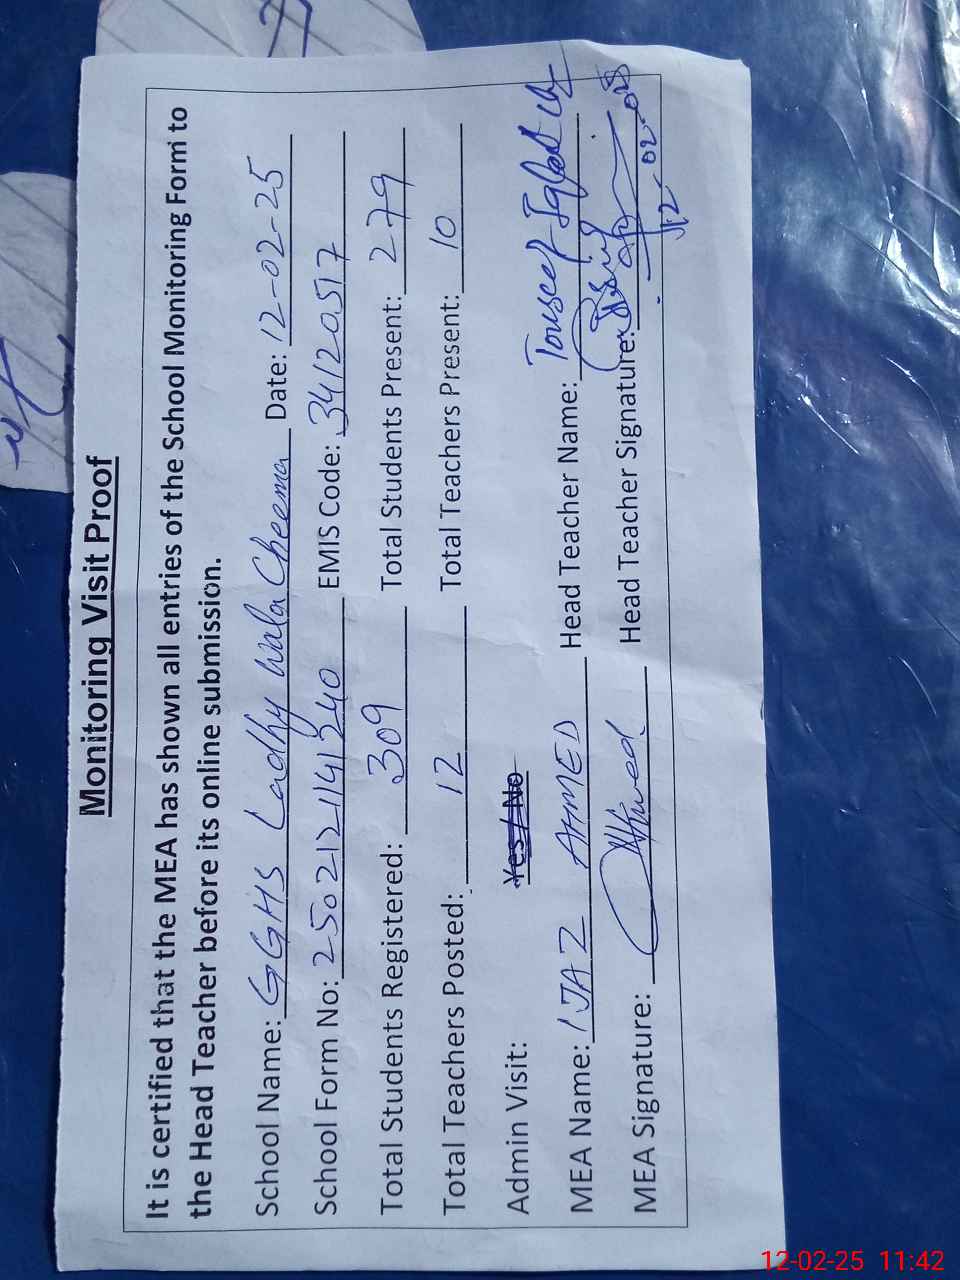 Monitoring Visit Proof
It is certified that the MEA has shown all entries of the School Monitoring Form to
the Head Teacher before its online submission.
School Name: GGHS Ladhy Wala Cheema Date: 12-02-25
School Form No: EMIS Code: 34120517
Total Students Registered: 309 Total Students Present: 279
Total Teachers Posted: 12 Total Teachers Present: 10
Admin Visit: Yes / No
MEA Name: IJAZ AHMED Head Teacher Name: Touseef
MEA Signature: Head Teacher Signature:
12-02-025
12-02-25 11:42